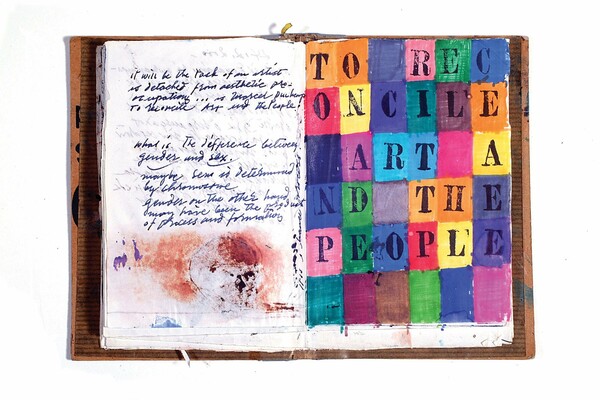 it will be the task of an artist
is detached from aesthetic pre-
... is toward
to reconcile Art and the People.
what is the difference between
gender and sex.
maybe is determined
by chromosome
gender on the other hand
may have been the product
of process and formation
TO REC
ONCILE
ART A
ND THE
PEOPLE